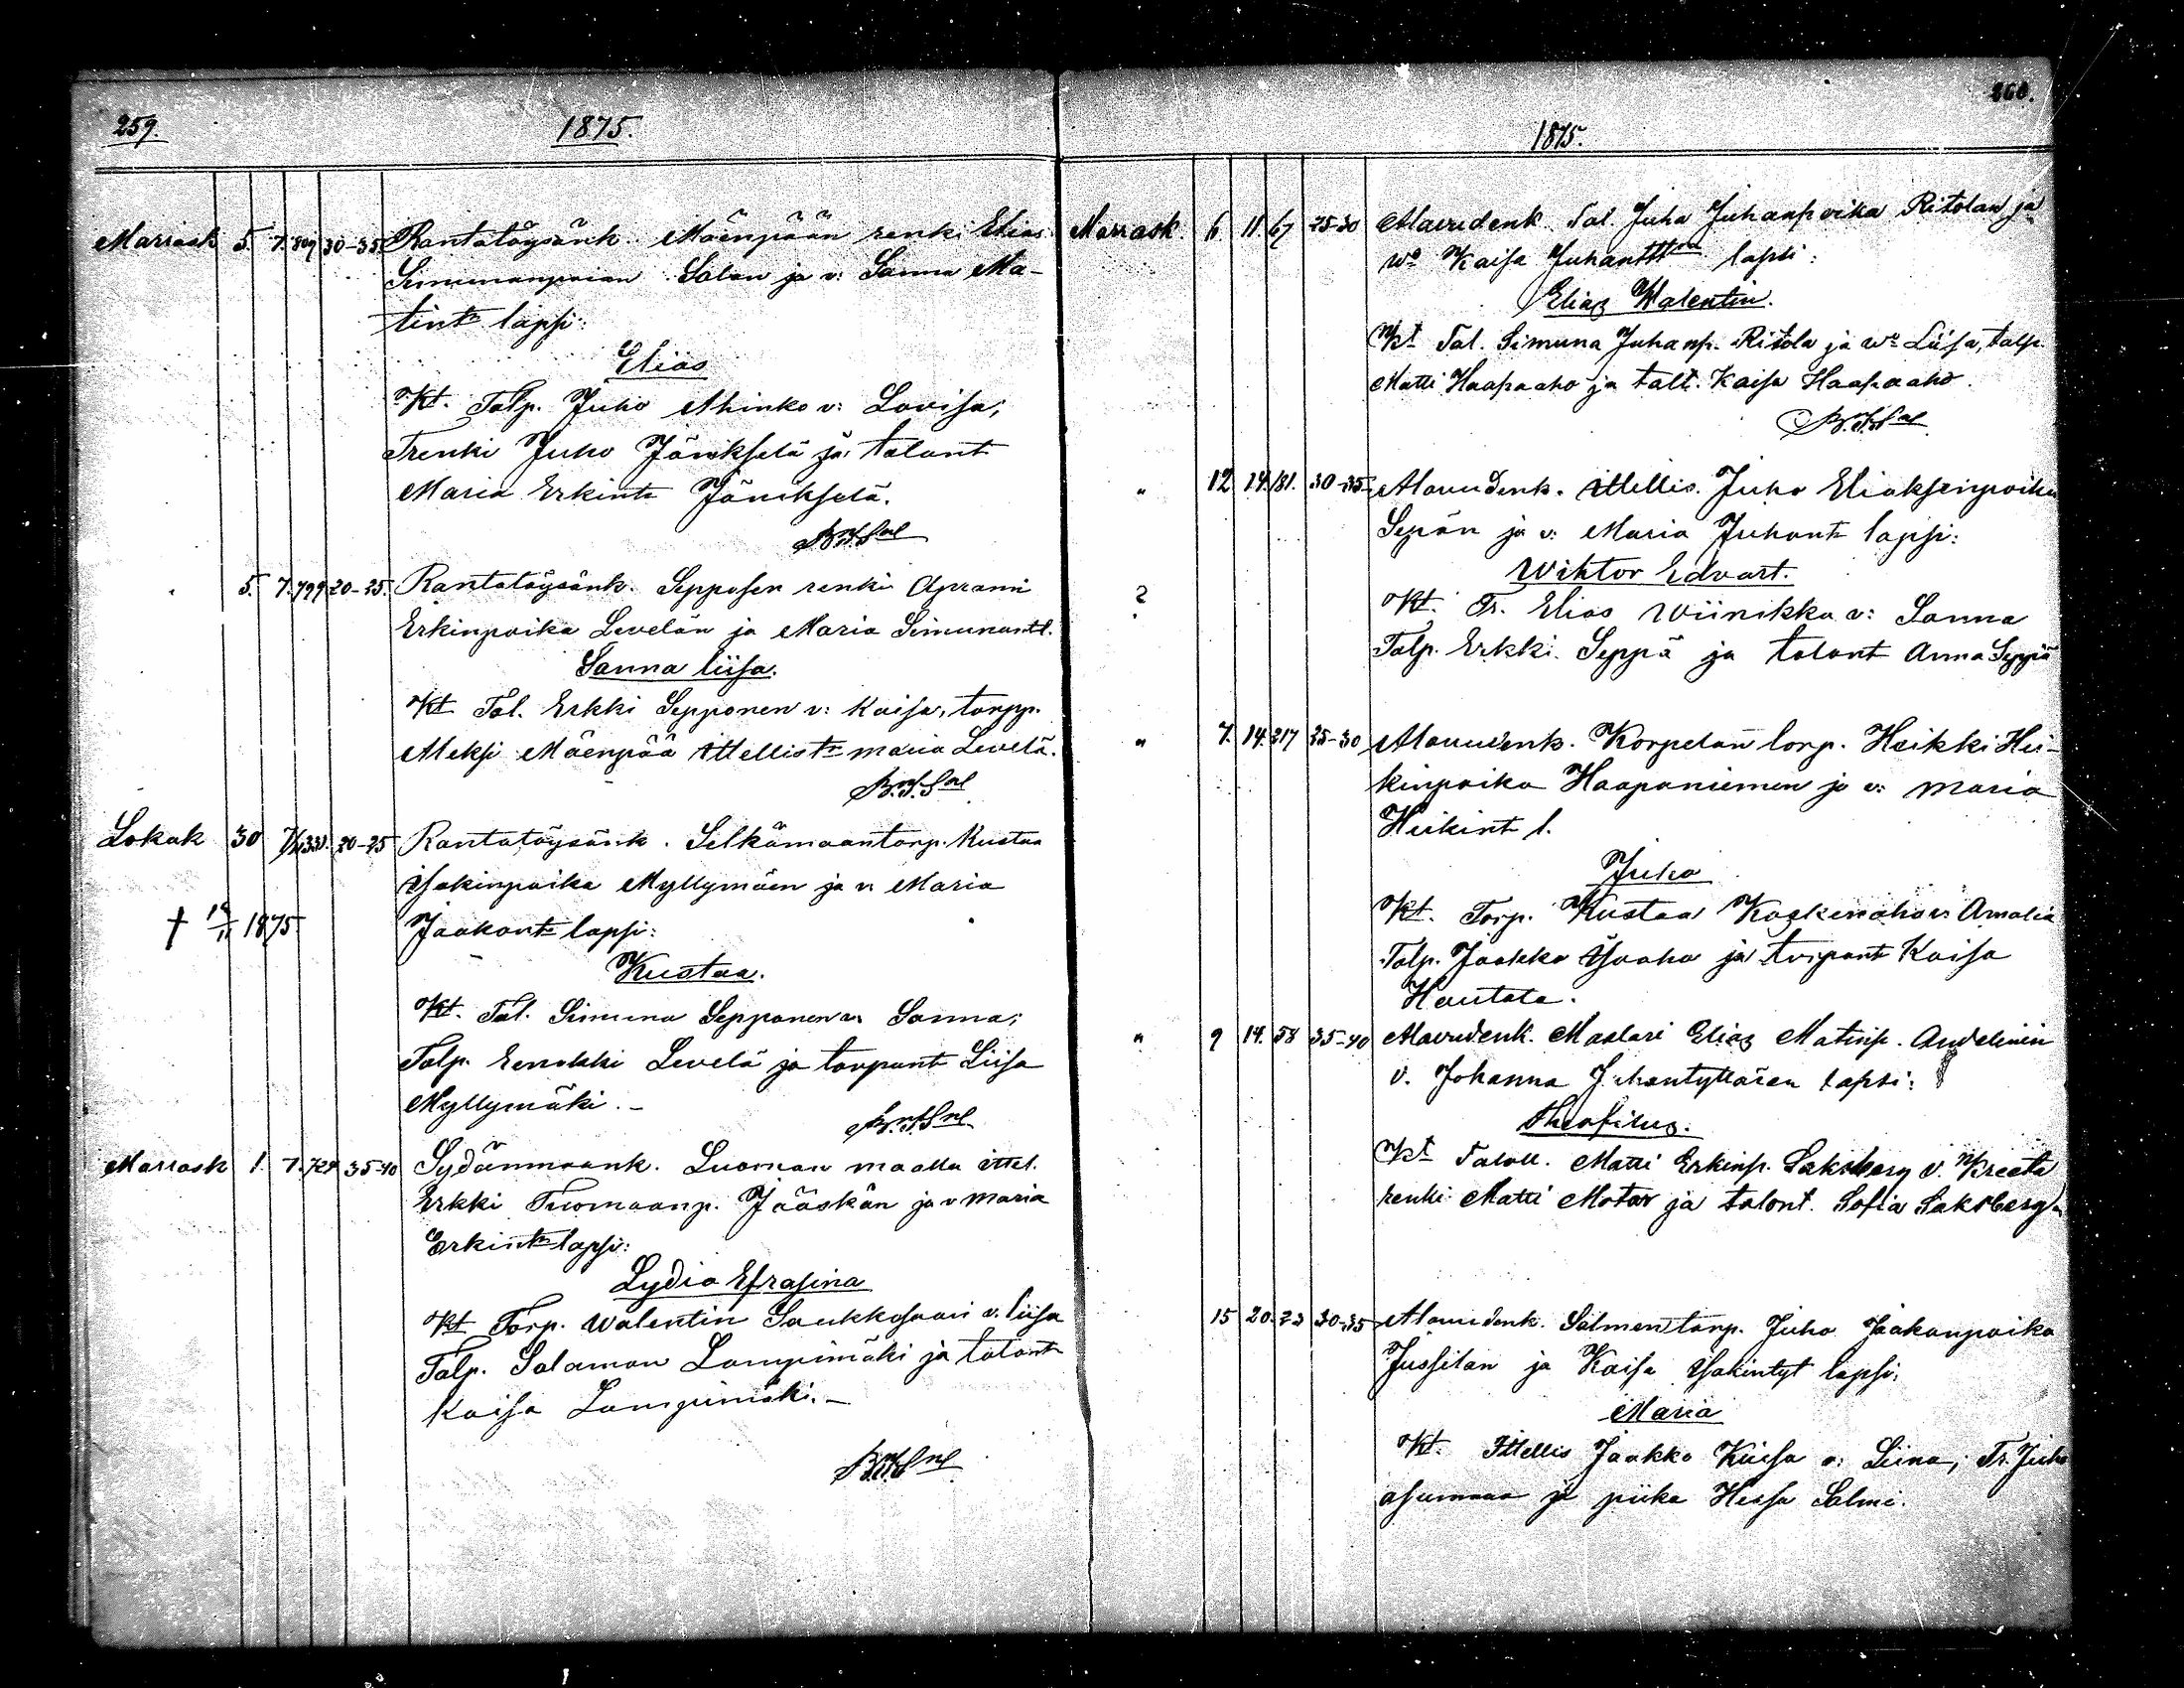 259.
1875.
Marrask 5. 7. 809 30-35 Rantatöysänk. Mäenpään renki Elias
Simunanpoian Salan ja v: Sanna Ma-
tintr lapsi:
Elias
Kt. Talp. Juho Ahinko v: Lovisa;
Trenki Juho Jänikselä ja talont
Maria Erkintr Jänikselä.
5. 7. 799 20-25. Rantatöysänk. Sepposen renki Aprami
Erkinpoika Levelän ja Maria Simunantl.
Sanna Liisa.
Kt Tal. Erkki Sepponen v: Kaisa, torpp.
Aleksi Mäenpää ittellistr maria Levelä.
Lokak 30 20-25 Rantatöysänk. Selkämaantorp. Kustaa
Isakinpoika Myllymäen ja v: Maria
† 1875 Jaakontr lapsi:
Kustaa.
Kt. Tal. Simuna Sepponen v: Sanna;
Talp. Eenokki Levelä ja torpant Liisa
Myllymäki.-
Marrask 1. 7. 724 35-40 Sydänmaank. Luoman maalla ittel.
Erkki Tuomaanp. Jääskän ja v maria
Erkintr lapsi:
Lydia Efrasina
Kt Torp. Walentin Saukkosaari v. liisa
Talp. Salamon Lampimäki ja talont
Kaisa Lampimäki.-
260.
1875.
Marrask. 6. 11. 67 25-30 Alavudenk. Tal. Juha Juhanpoika Ritolan ja
wo Kaisa lapsi:
Elias Walentin.
Kt Tal. Simuna Juhanp. Ritola ja wo Liisa, talp.
Matti Haapaaho ja talt. Kaisa Haapaaho.
" 12 14. 181. 30-35 Alavudenk. ittellis. Juho Eliaksenpoika
Sepän ja v: Maria Juhontr lapsi:
Wihtor Edvart.
? Kt. Tr. Elias Wiinikka v: Sanna
Talp. Erkki Seppä ja talont Anna Seppä
" 7. 14. 217 25-30 Alavudenk. Korpelan torp. Heikki Hei-
kinpoika Haapaniemen ja v: maria
Heikint l.
Juho
Kt. Torp. Kustaa Koskenaho v: Amalia
Talp. Jaakko Isoaho ja torpant Kaisa
Hautala.
" 9 14. 58 35-40 Alavudenk. Maalari Elias Matinp. Andelinin
v. Johanna Juhantyttären lapsi:
Theofilus.
Kt Taloll. Matti Erkinp. Saksberg v. Kreeta
renki Matti Motar ja talont. Sofia Saksberg.
15 20. 23 30-35 Alavudenk. Salmen torp. Juho Jaakonpoika
Jussilan ja Kaisa Isakintyt lapsi.
Maria
Kt. Ittellis Jaakko Kiiesa v: Liina; Tr. Juho
asumaa ja piika Hessa Salmi.